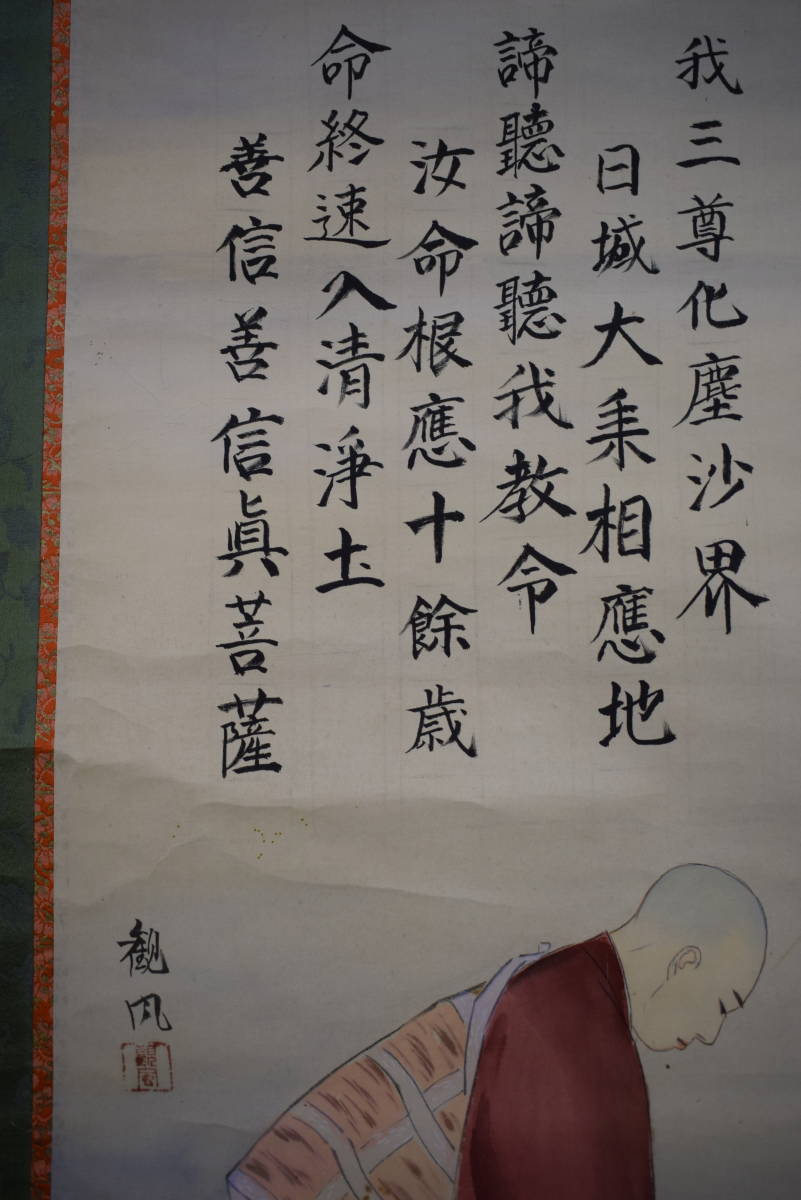 我三尊化塵沙界
日域大乗相應地
諦聽諦聽我教令
汝命根應十餘歳
命終速入清淨土
善信善信眞菩薩
観風